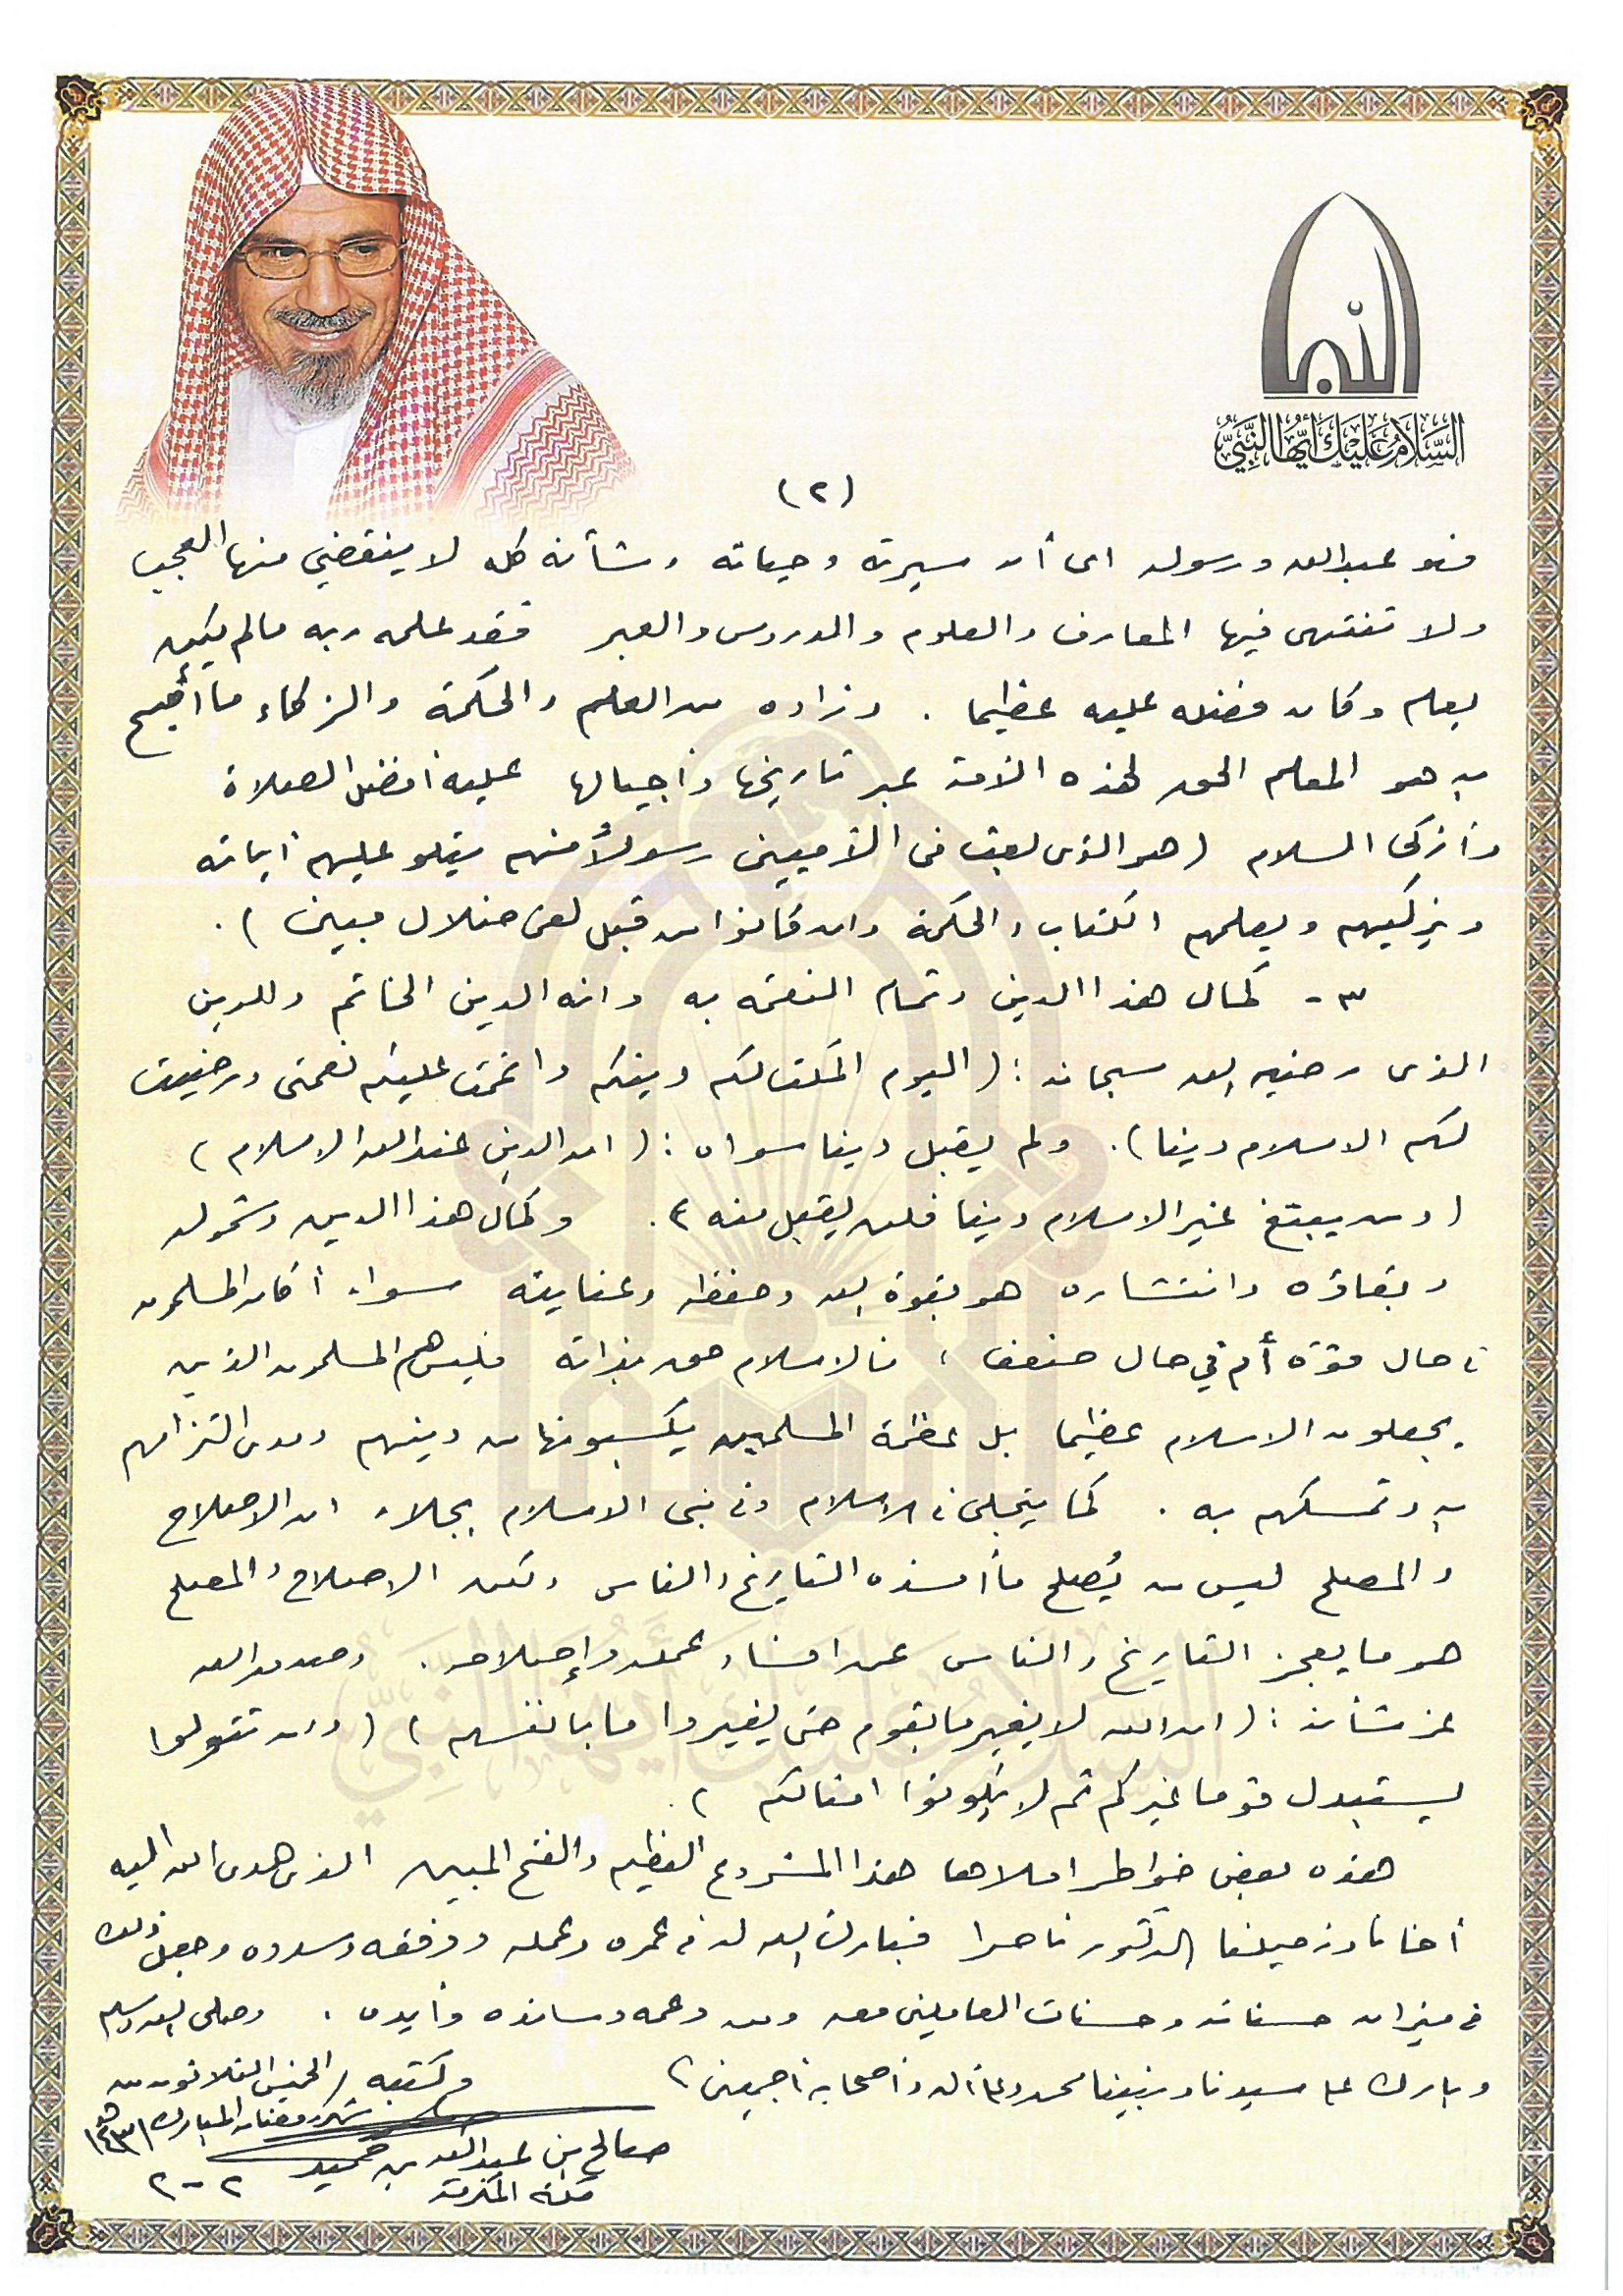 النبي
السَّلَامُ عَلَيْكَ أَيُّهَا النَّبِيُّ
(٢)
فهو عبدالله ورسوله اى أن سيرته وحياته وشأنه كله لا ينقضي منها العجب
ولا تنتهى فيها المعارف والعلوم والدروس والعبر فقد علمه ربه مالم يكن
يعلم وكان فضله عليه عظيما . وزاده من العلم والحكمة والزكاء ما أصبح
به هو المعلم الحق لهذه الأمة عبر تاريخها وأجيالها عليه أفضل الصلاة
وأزكى السلام (هو الذى بعث فى الأميين رسولاً منهم يتلو عليهم آياته
ويزكيهم ويعلمهم الكتاب والحكمة وان كانوا من قبل لفى ضلال مبين ) .
٣ - كمال هذا الدين وتمام النعمة به وانه الدين الخاتم وللدين
الذى رضيه الله سبحانه : ( اليوم اكملت لكم دينكم واتممت عليكم نعمتى ورضيت
لكم الاسلام دينا ) . ولم يقبل دينا سواه : ( ان الدين عند الله الاسلام )
( ومن يبتغ غير الاسلام دينا فلن يقبل منه ) . وكمال هذا الدين وشموله
وبقاؤه وانتشاره هو بقوة الله وحفظه وعنايته سواء أكان المسلمون
فى حال قوة أم في حال ضعف ، فالاسلام حق بذاته فليس هم المسلمون الذين
يجعلون الاسلام عظيما بل عظمة المسلمين يكسبونها من دينهم ومدى التزامهم
به وتمسكهم به . كما يتجلى فى الاسلام وفى نبى الاسلام بجلاء ان الاصلاح
والمصلح ليس من يُصلح ما أفسده التاريخ والناس ولكن الاصلاح والمصلح
هو ما يعجز التاريخ والناس عن افساد عمله وإصلاحه . وصدق الله
عز شأنه : ( ان الله لا يغير ما بقوم حتى يغيروا ما بانفسهم ) ( وان تتولوا
يستبدل قوما غيركم ثم لا يكونوا امثالكم ) .
هذه بعض خواطر املاها هذا المشروع العظيم والفتح المبين الذى هدى الله اليه
أخانا وزميلنا الدكتور ناصرا فبارك الله له فى عمره وعمله ووفقه وسدده وجعل ذلك
فى ميزان حسناته وحسنات العاملين معه ومن دعمه وسانده وأيده . وصلى الله وسلم
وبارك على سيدنا ونبينا محمد وعلى آله وأصحابه أجمعين ،
وكتبه / الخميس الثلاثون من
شهر رمضان المبارك ١٤٣١ هـ
صالح بن عبدالله بن حميد
مكة المكرمة
٢ - ٢